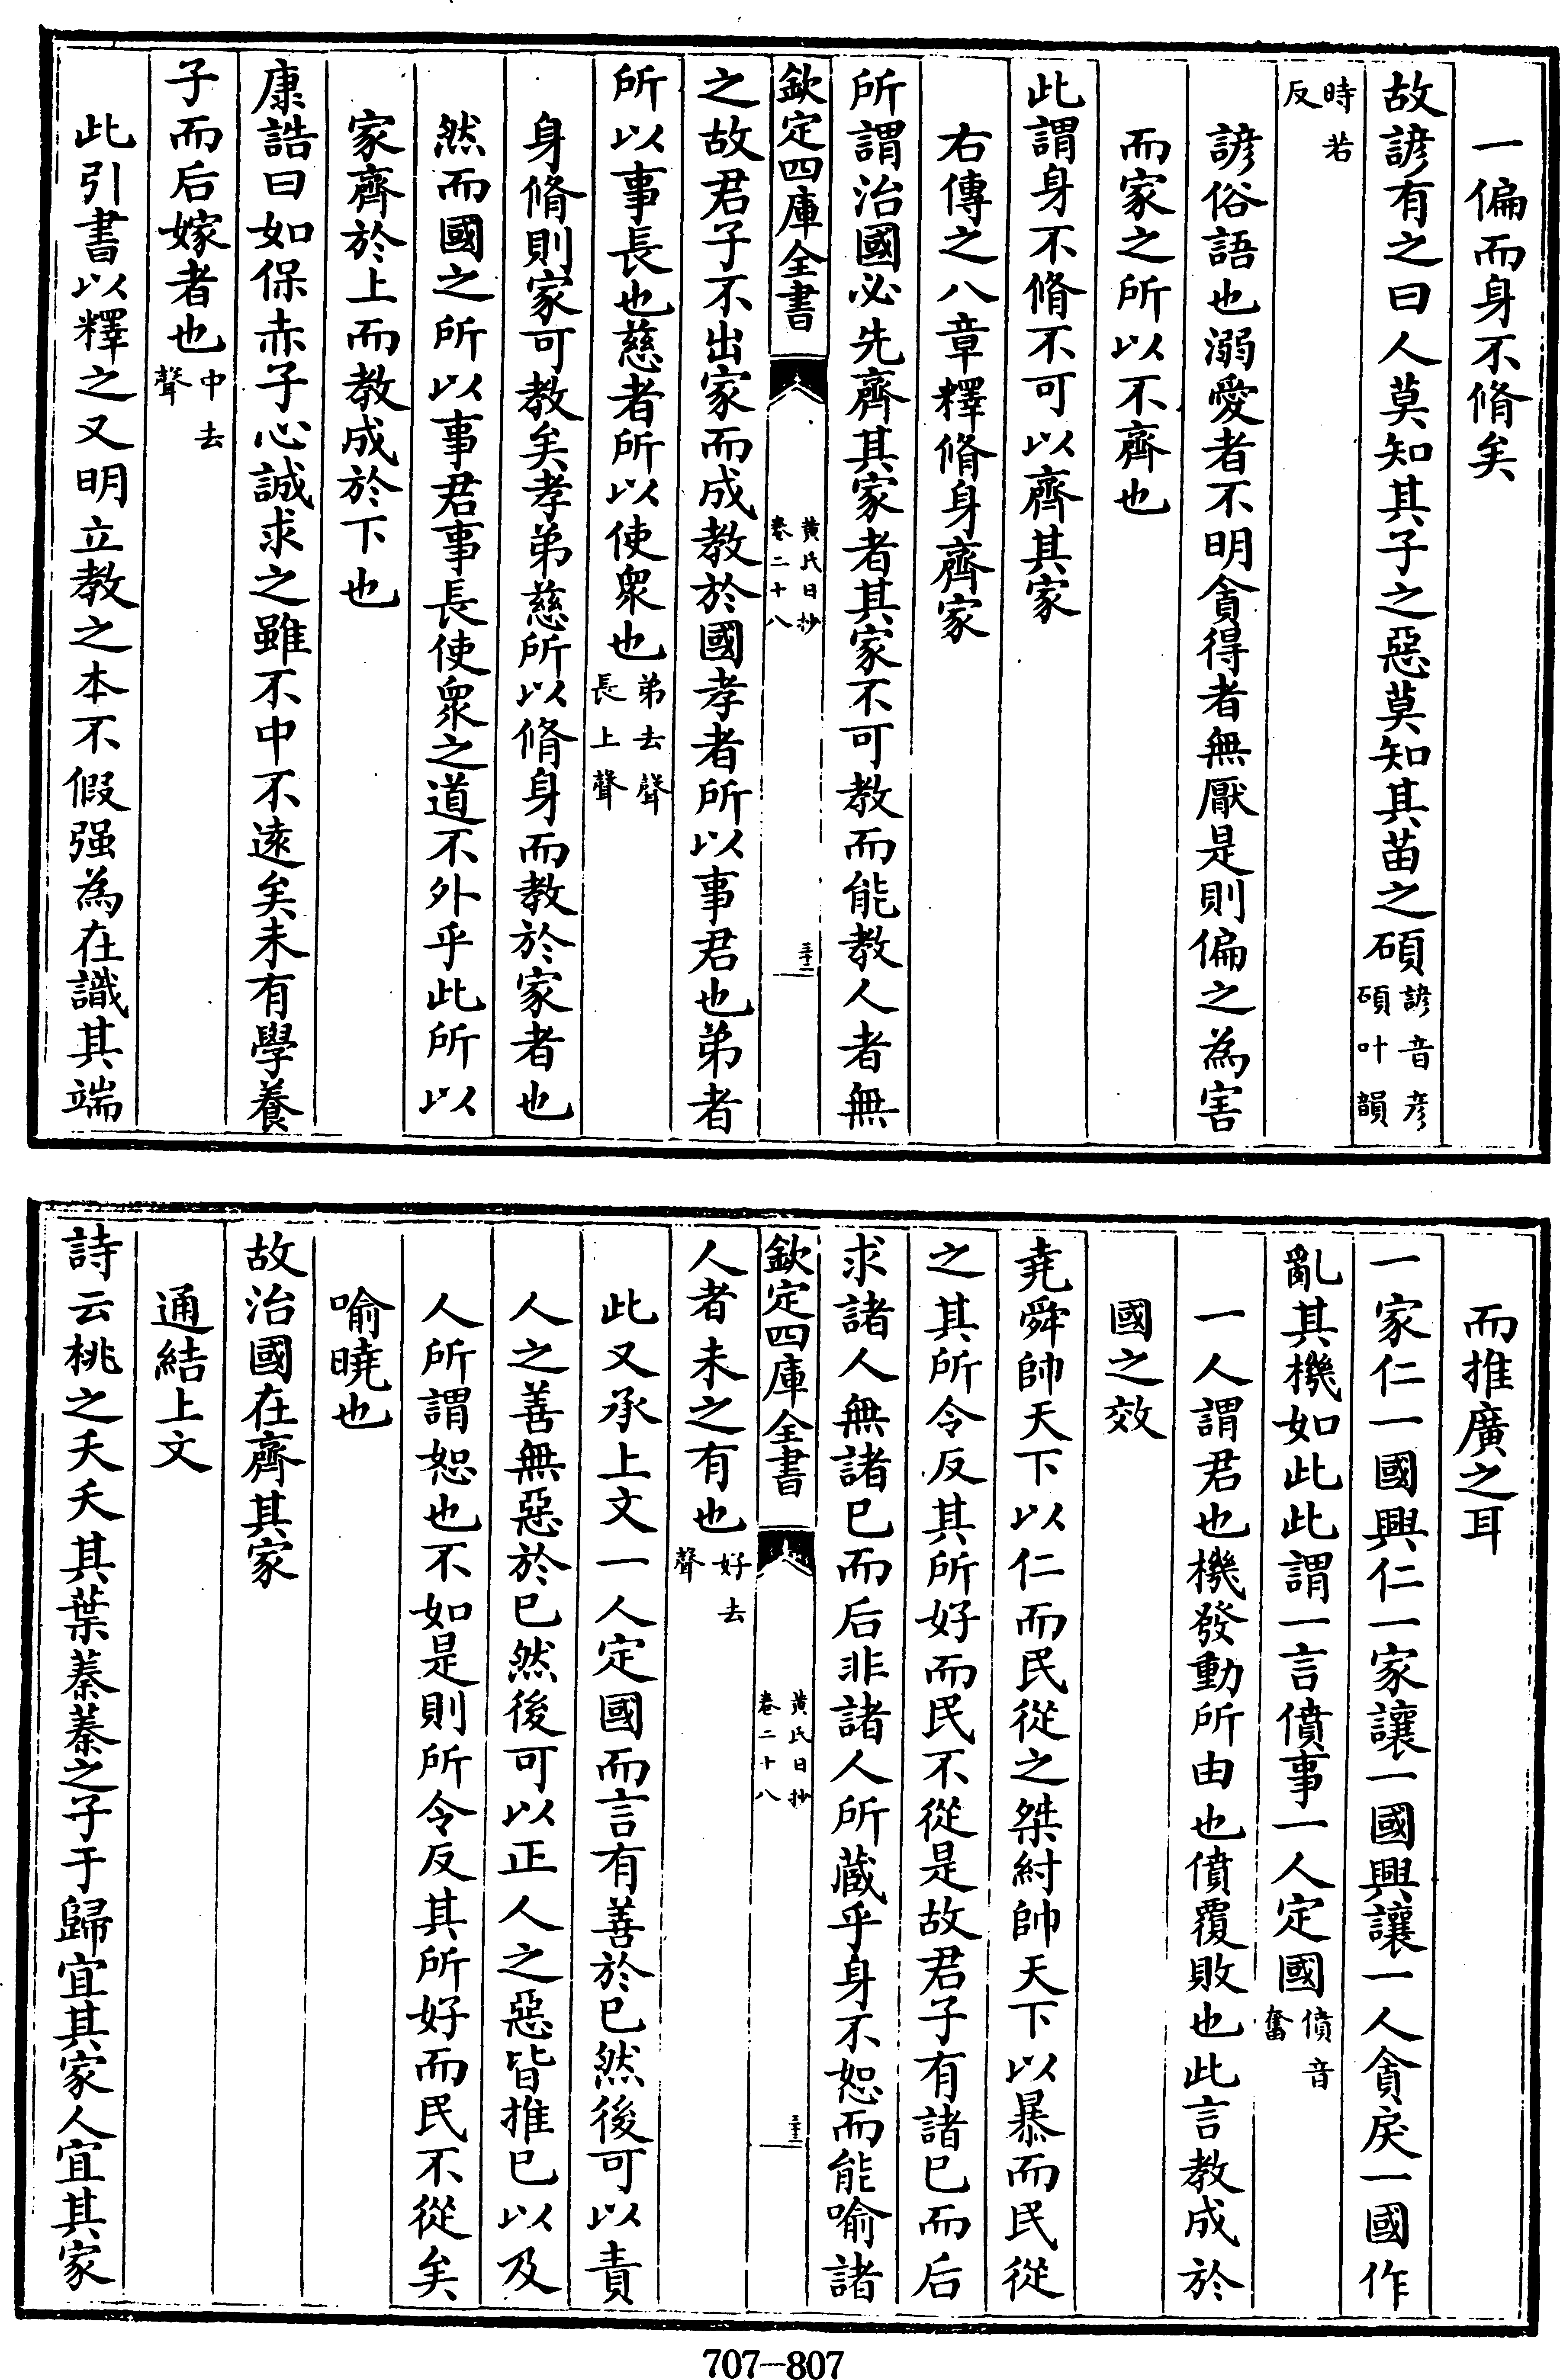 一偏而身不脩矣
故諺有之曰人莫知其子之惡莫知其苗之碩諺音彦碩叶韻
時若反
諺俗語也溺愛者不明貪得者無厭是則偏之為害
而家之所以不齊也
此謂身不脩不可以齊其家
右傳之八章釋脩身齊家
所謂治國必先齊其家者其家不可教而能教人者無
欽定四庫全書
黄氏日抄
卷二十八
之故君子不出家而成教於國孝者所以事君也弟者
所以事長也慈者所以使衆也弟去聲長上聲
身脩則家可教矣孝弟慈所以脩身而教於家者也
然而國之所以事君事長使衆之道不外乎此所以
家齊於上而教成於下也
康誥曰如保赤子心誠求之雖不中不遠矣未有學養
子而后嫁者也中去聲
此引書以釋之又明立教之本不假强為在識其端
而推廣之耳
一家仁一國興仁一家讓一國興讓一人貪戾一國作
亂其機如此此謂一言僨事一人定國僨音奮
一人謂君也機發動所由也僨覆敗也此言教成於
國之效
堯舜帥天下以仁而民從之桀紂帥天下以暴而民從
之其所令反其所好而民不從是故君子有諸已而后
求諸人無諸已而后非諸人所藏乎身不恕而能喻諸
欽定四庫全書
黄氏日抄
卷二十八
人者未之有也好去聲
此又承上文一人定國而言有善於已然後可以責
人之善無惡於已然後可以正人之惡皆推已以及
人所謂恕也不如是則所令反其所好而民不從矣
喻曉也
故治國在齊其家
通結上文
詩云桃之夭夭其葉蓁蓁之子于歸宜其家人宜其家
707-807